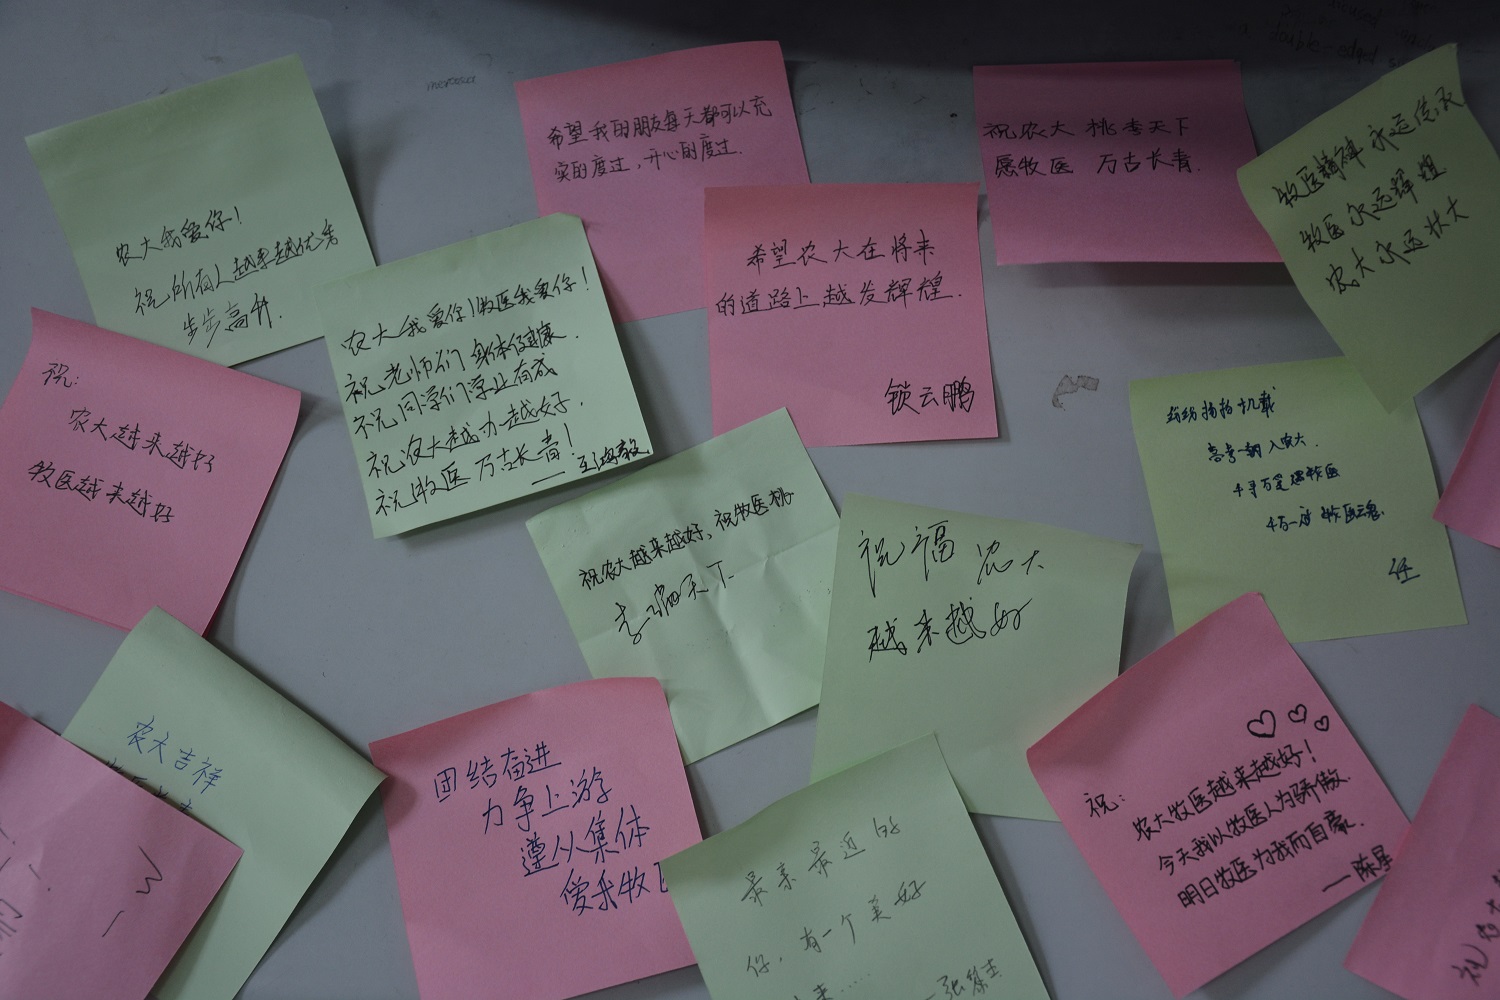 农大我爱你！
祝所有人越来越优秀
步步高升.
希望我的朋友每天都可以充
实的度过，开心的度过.
祝农大 桃李天下
愿牧医 万古长青.
牧医精神永远传承
牧医永远辉煌
农大永远壮大
农大我爱你！牧医我爱你！
祝老师们身体健康.
祝同学们学业有成
祝农大越办越好.
祝牧医万古长青！
希望农大在将来
的道路上越发辉煌.
锁云鹏
祝:
农大越来越好
牧医越来越好
十几载
高考一朝入农大.
牧医魂.
任
祝农大越来越好，祝牧医桃
李遍天下
祝福农大
越来越好
农大吉祥
团结奋进
力争上游
遵从集体
爱我牧
最亲最近的
你，有一个美好
祝:
农大牧医越来越好！
今天我以牧医人为骄傲.
明日牧医为我而自豪.
——陈星